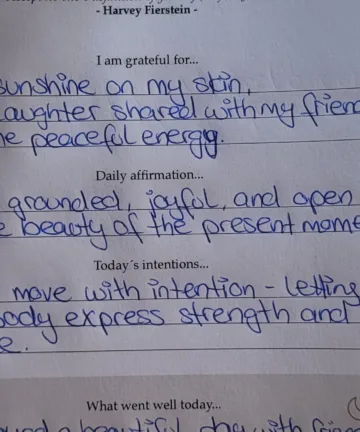 - Harvey Fierstein -
I am grateful for...
sunshine on my skin,
laughter shared with my frien
he peaceful energy.
Daily affirmation...
grounded, joyful, and open
e beauty of the present mome
Today´s intentions...
move with intention - letting
body express strength and
e.
What went well today...
a beautiful day with